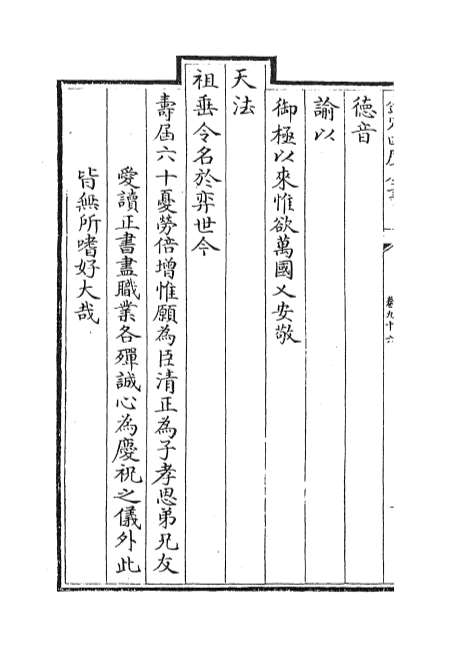 德音
諭以
御極以來惟欲萬國乂安敬
天法
祖垂令名於奕世今
壽届六十憂勞倍增惟願為臣清正為子孝思弟兄友
愛讀正書盡職業各殫誠心為慶祝之儀外此
皆無所嗜好大哉
卷九十六